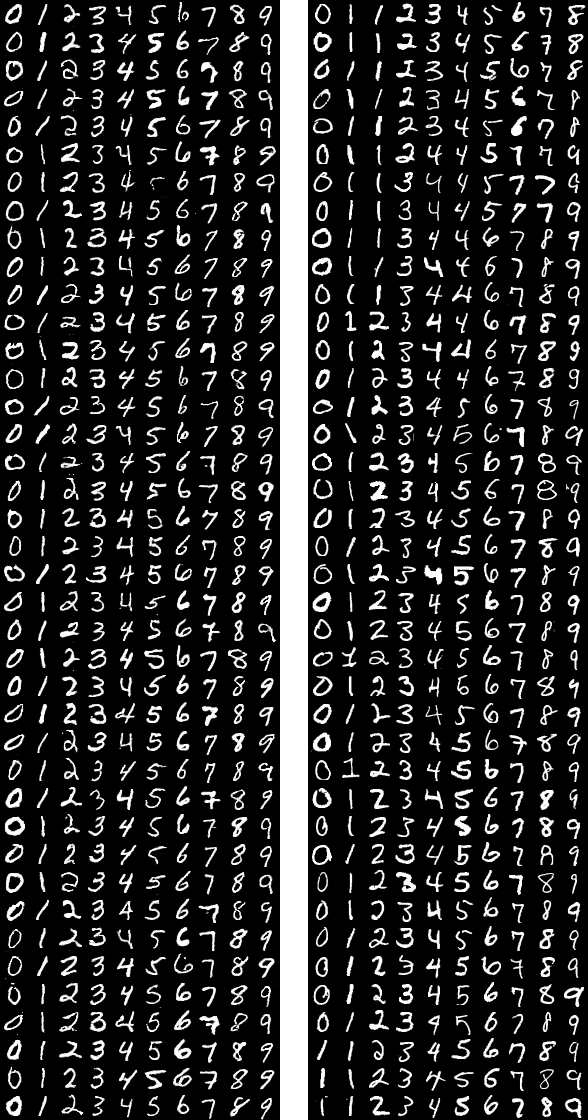 0 1 2 3 4 5 6 7 8 9
0 1 2 3 4 5 6 7 8 9
0 1 2 3 4 5 6 7 8 9
0 1 2 3 4 5 6 7 8 9
0 1 2 3 4 5 6 7 8 9
0 1 2 3 4 5 6 7 8 9
0 1 2 3 4 5 6 7 8 9
0 1 2 3 4 5 6 7 8 9
0 1 2 3 4 5 6 7 8 9
0 1 2 3 4 5 6 7 8 9
0 1 2 3 4 5 6 7 8 9
0 1 2 3 4 5 6 7 8 9
0 1 2 3 4 5 6 7 8 9
0 1 2 3 4 5 6 7 8 9
0 1 2 3 4 5 6 7 8 9
0 1 2 3 4 5 6 7 8 9
0 1 2 3 4 5 6 7 8 9
0 1 2 3 4 5 6 7 8 9
0 1 2 3 4 5 6 7 8 9
0 1 2 3 4 5 6 7 8 9
0 1 2 3 4 5 6 7 8 9
0 1 2 3 4 5 6 7 8 9
0 1 2 3 4 5 6 7 8 9
0 1 2 3 4 5 6 7 8 9
0 1 2 3 4 5 6 7 8 9
0 1 2 3 4 5 6 7 8 9
0 1 2 3 4 5 6 7 8 9
0 1 2 3 4 5 6 7 8 9
0 1 2 3 4 5 6 7 8 9
0 1 2 3 4 5 6 7 8 9
0 1 2 3 4 5 6 7 8 9
0 1 2 3 4 5 6 7 8 9
0 1 2 3 4 5 6 7 8 9
0 1 2 3 4 5 6 7 8 9
0 1 2 3 4 5 6 7 8 9
0 1 2 3 4 5 6 7 8 9
0 1 2 3 4 5 6 7 8 9
0 1 2 3 4 5 6 7 8 9
0 1 2 3 4 5 6 7 8 9
0 1 2 3 4 5 6 7 8 9
0 1 1 2 3 4 5 6 7 8
0 1 1 2 3 4 5 6 7 8
0 1 1 2 3 4 5 6 7 8
0 1 1 2 3 4 5 6 7 8
0 1 1 2 3 4 5 6 7 8
0 1 1 2 4 4 5 7 7 9
0 1 1 3 4 4 5 7 7 9
0 1 1 3 4 4 5 7 7 9
0 1 1 3 4 4 6 7 8 9
0 1 1 3 4 4 6 7 8 9
0 1 1 3 4 4 6 7 8 9
0 1 2 3 4 4 6 7 8 9
0 1 2 3 4 4 6 7 8 9
0 1 2 3 4 4 6 7 8 9
0 1 2 3 4 5 6 7 8 9
0 1 2 3 4 5 6 7 8 9
0 1 2 3 4 5 6 7 8 9
0 1 2 3 4 5 6 7 8 9
0 1 2 3 4 5 6 7 8 9
0 1 2 3 4 5 6 7 8 9
0 1 2 3 4 5 6 7 8 9
0 1 2 3 4 5 6 7 8 9
0 1 2 3 4 5 6 7 8 9
0 1 2 3 4 5 6 7 8 9
0 1 2 3 4 6 6 7 8 9
0 1 2 3 4 5 6 7 8 9
0 1 2 3 4 5 6 7 8 9
0 1 2 3 4 5 6 7 8 9
0 1 2 3 4 5 6 7 8 9
0 1 2 3 4 5 6 7 8 9
0 1 2 3 4 5 6 7 8 9
0 1 2 3 4 5 6 7 8 9
0 1 2 3 4 5 6 7 8 9
0 1 2 3 4 5 6 7 8 9
0 1 2 3 4 5 6 7 8 9
0 1 2 3 4 5 6 7 8 9
0 1 2 3 4 5 6 7 8 9
1 1 2 3 4 5 6 7 8 9
1 1 2 3 4 5 6 7 8 9
1 1 2 3 4 5 6 7 8 0